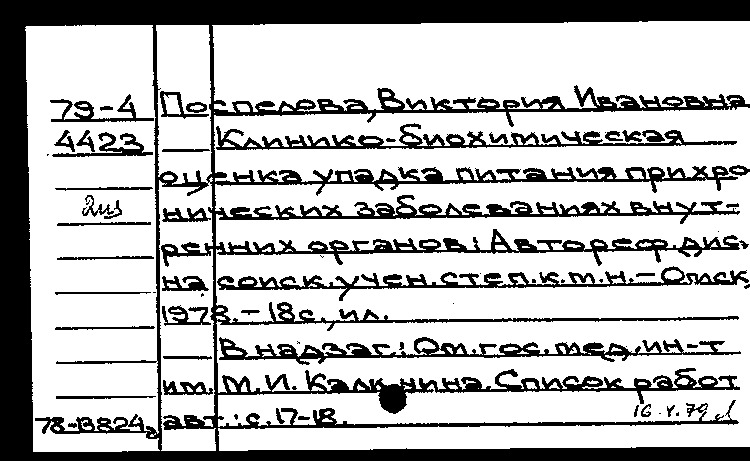 79-4 Поспелова, Виктория Ивановна
4423 Клинико-биохимическая
оценка упадка питания при хро-
2 из нических заболеваниях внут-
ренних органов: Автореф. дис.
на соиск. учен. степ. к.м.н. - Омск,
1978. - 18 с., ил.
В надзаг.: Ом. гос. мед. ин-т
им. М.И. Калинина. Список работ
78-13824а авт.: с. 17-18. 16.V.79